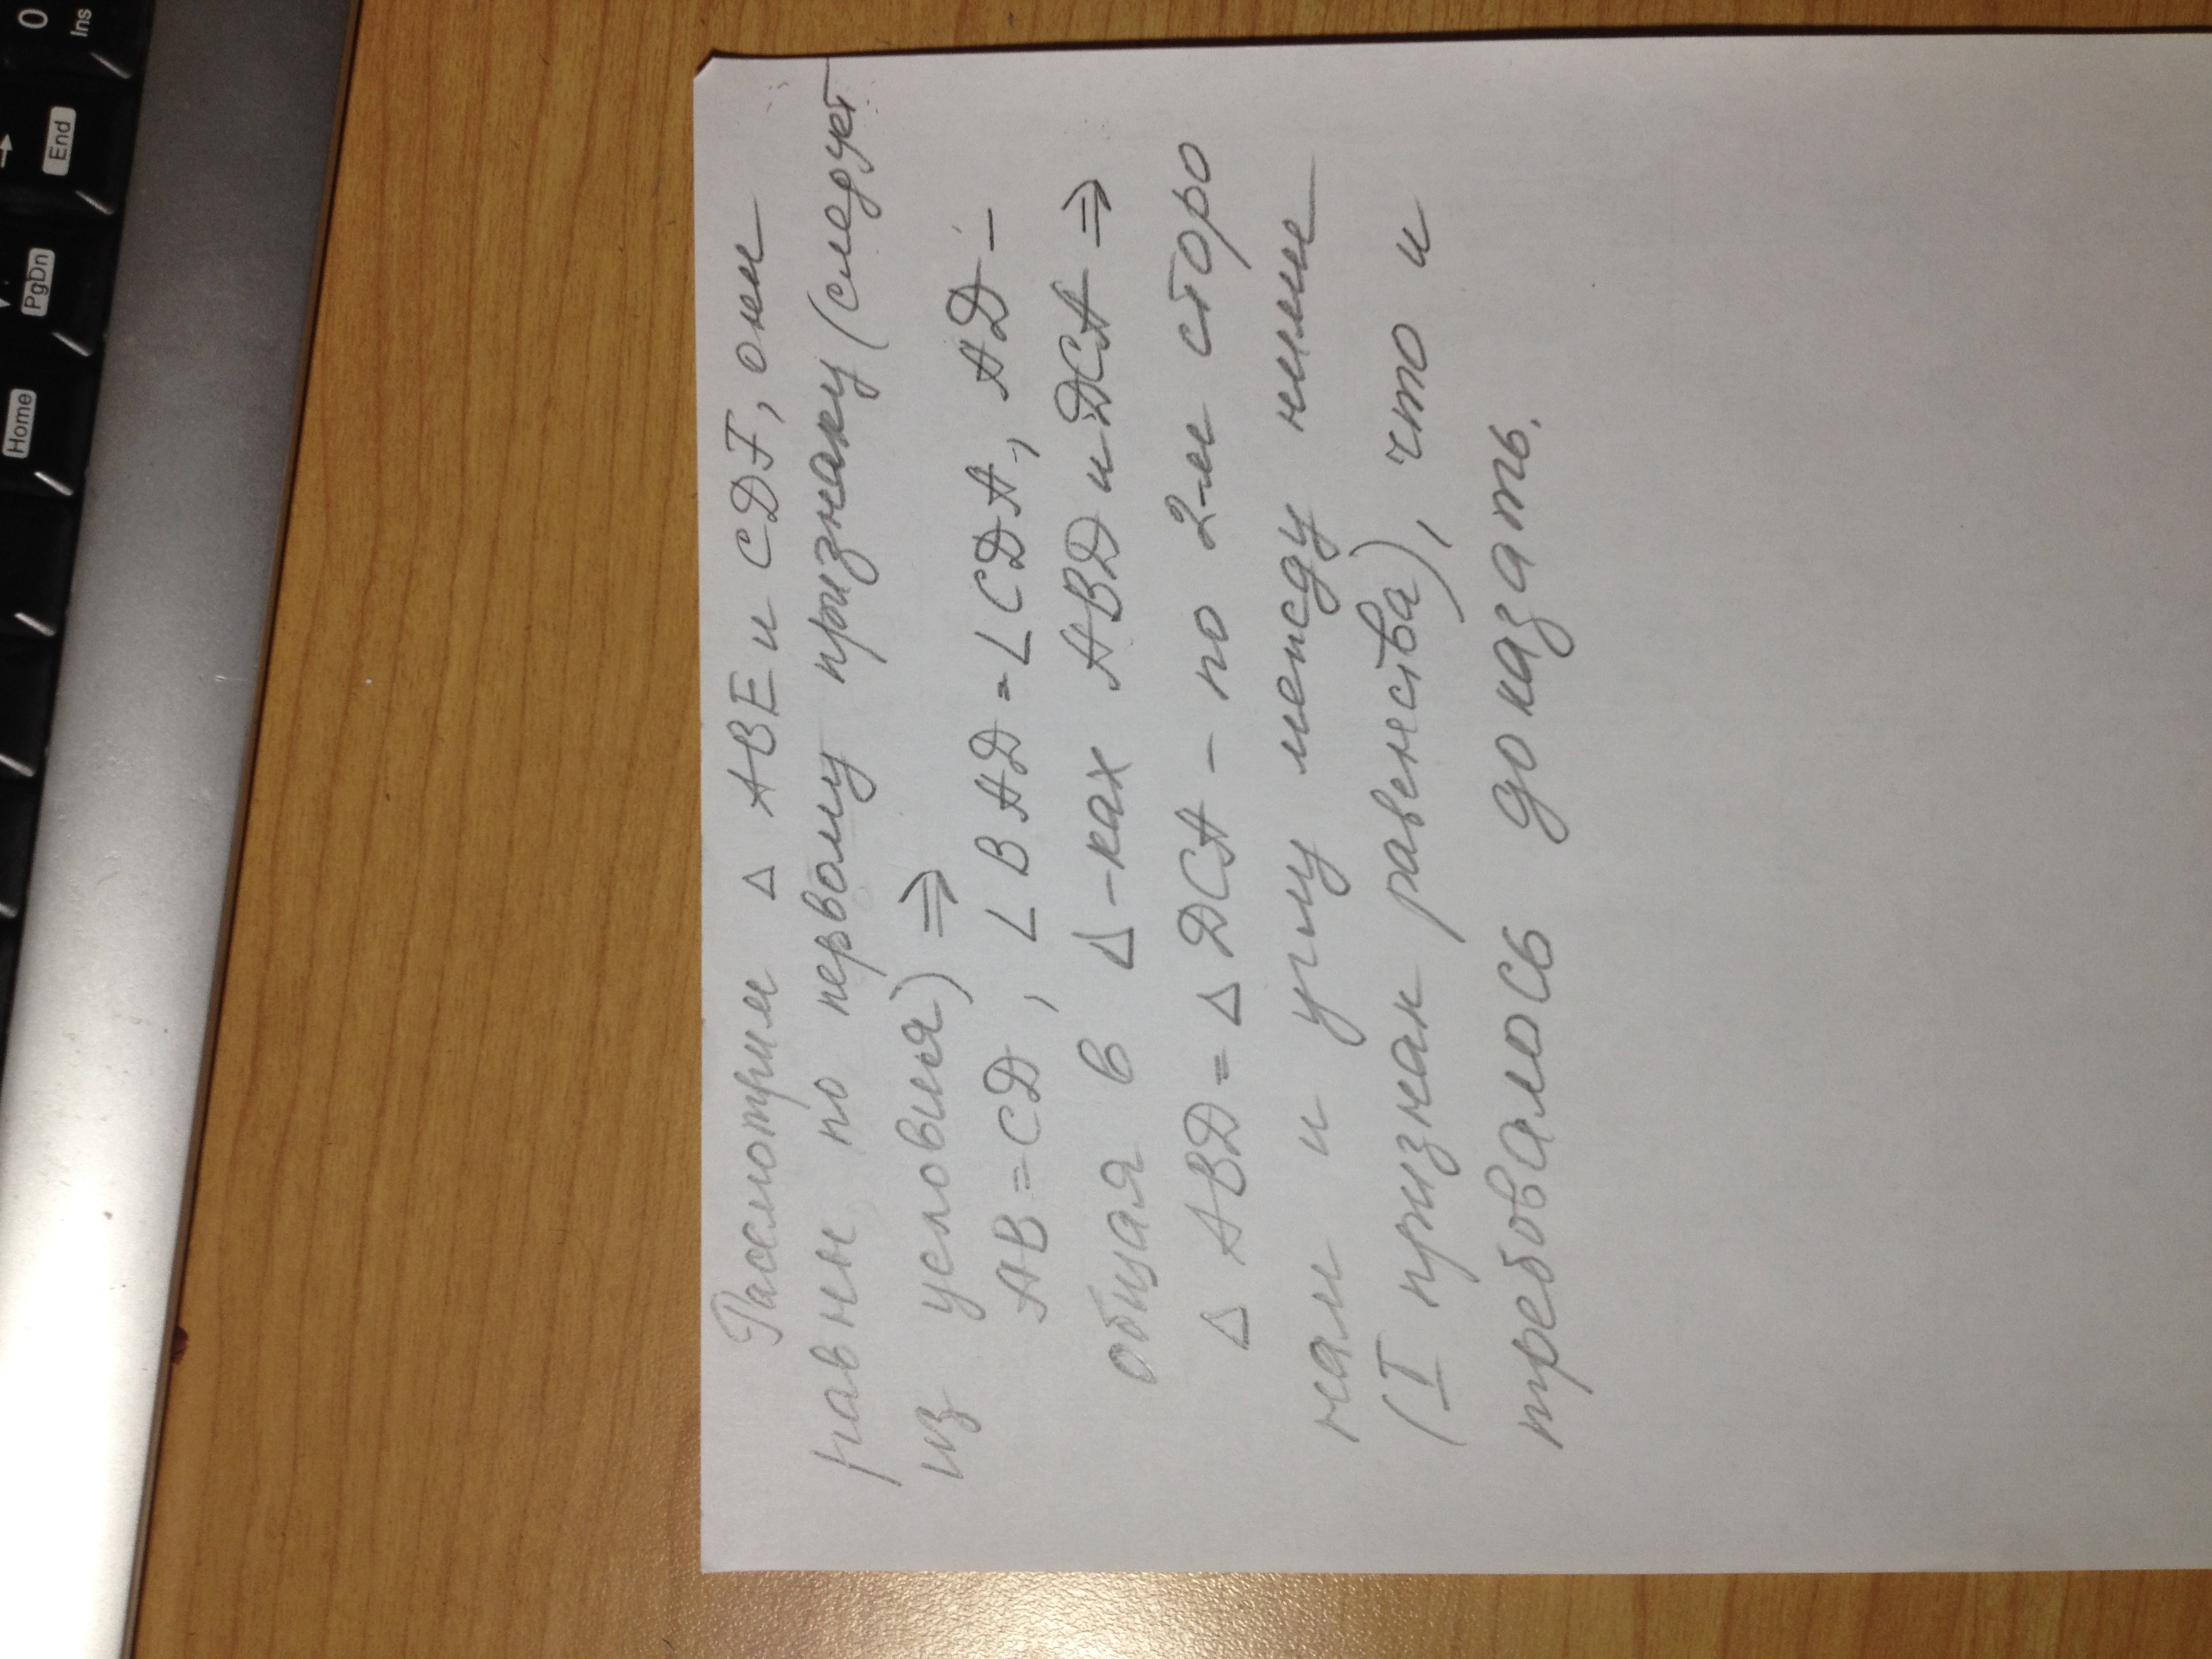 Рассмотрим △ ABE и CDF, они
равны по первому признаку (следует
из условия) ⇒
AB = CD, ∠BAD = ∠CDA, AD –
общая в △-ках ABD и DCA ⇒
△ ABD = △ DCA – по 2-м сторо
нам и углу между ними
(I признак равенства), что и
требовалось доказать.
0
Ins
End
PgDn
Home